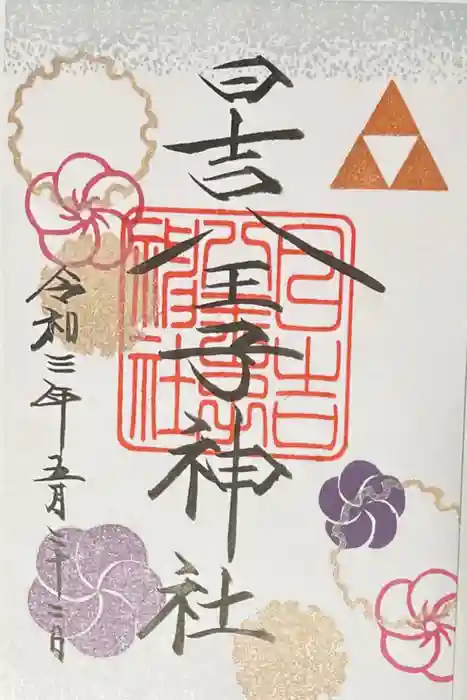 日吉八王子神社
日吉
八王子
神社
令和三年五月二十二日